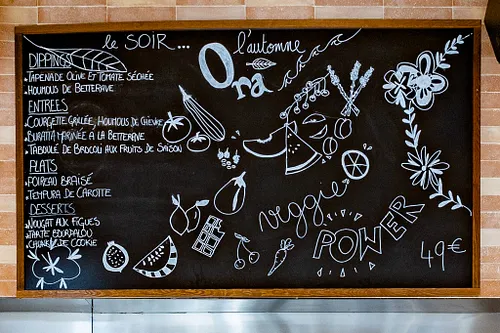 le SOIR...
l'automne
Ora
DIPPINGS
TAPENADE OLIVE ET TOMATE SÉCHÉE
HOUMOUS DE BETTERAVE
ENTRÉES
COURGETTE GRILLÉE, HOUMOUS DE CHÈVRE
BURATTA MARINÉE A LA BETTERAVE
TABOULÉ DE BROCOLI AUX FRUITS DE SAISON
PLATS
POIREAU BRAISÉ
TEMPURA DE CAROTTE
DESSERTS
NOUGAT AUX FIGUES
TARTE BOURDALOU
CHUNKY DE COOKIE
veggie
POWER
49€